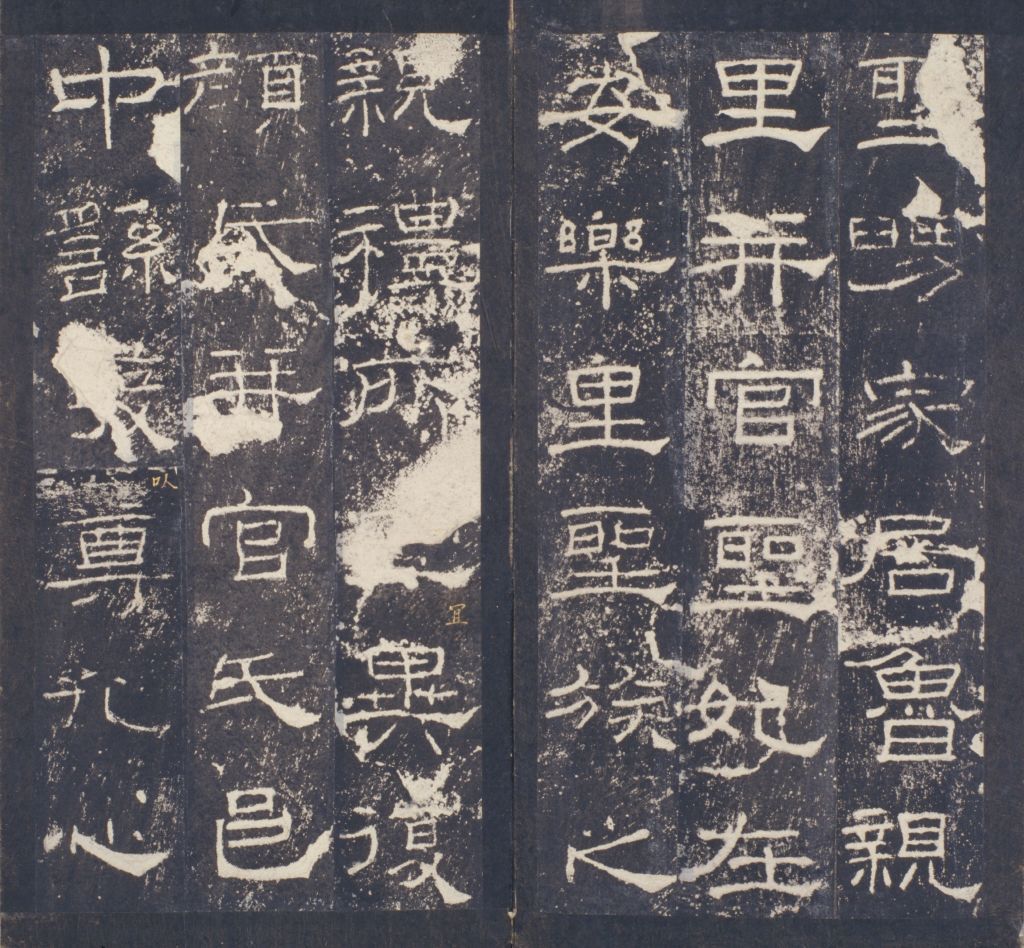 聖舅家居魯親
里并官聖妃在
安樂里聖族之
親禮所宜異復
顏氏并官氏邑
中繇發以尊孔心